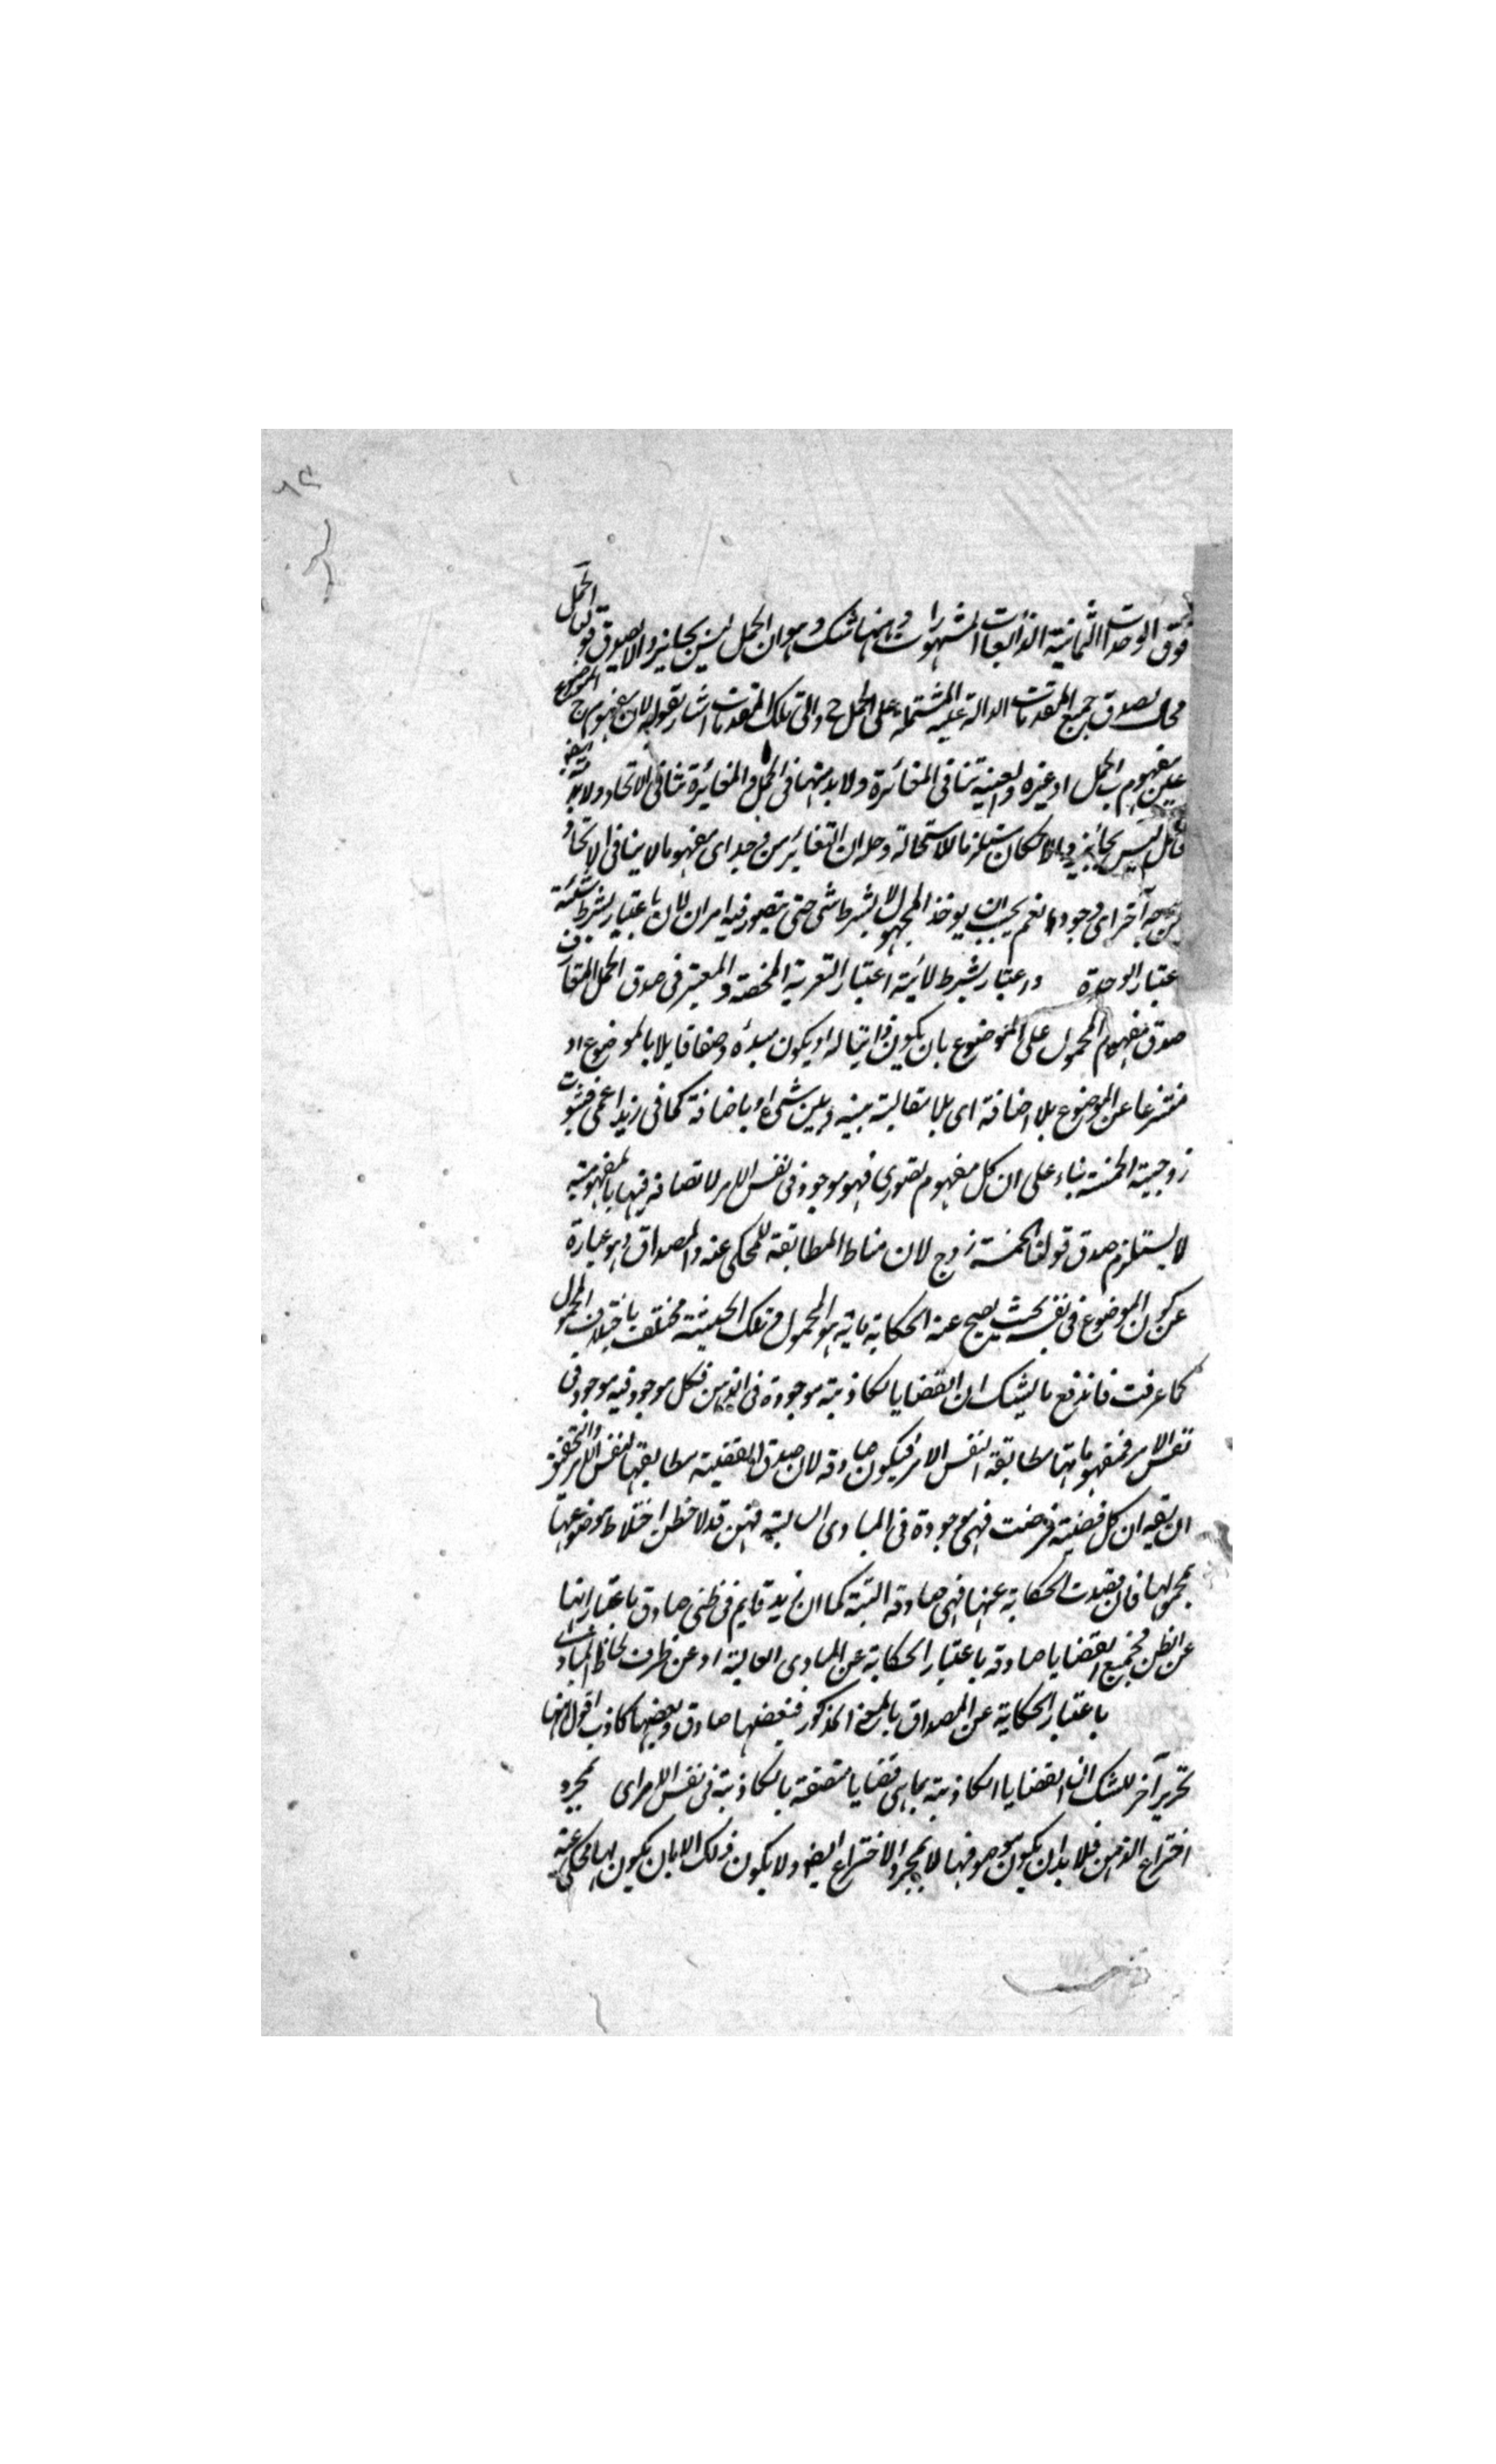 فوق الوحدات الثمانية الذائعات المشهورات وههنا شك وهو ان الحمل ليس بجايز والا لصدق قولنا الحمل
محال بصدق جميع المقدمات الدالة عليه المشتملة على الحمل ح والى تلك المقدمات اشار بقوله لان مفهوم ج الموضوع
عين مفهوم ب الحمل او غيره والعينية تنافى المغائرة ولا بد منها فى الحمل والمغائرة تنافى الاتحاد ولا بد
ليس بجائز والا لكان مستلزما للاستحالة وحله ان التغائر من وجه اى مفهوما لا ينافى الاتحاد
من وجه آخر اى وجودا نعم يجب ان يوخذ المحمول لا بشرط شى حتى يتصور فيه امران لان باعتبار بشرط شيئية
عتبار الوحدة واعتبار بشرط لائية اعتبار التعرية المحضة والمعتبر فى صدق الحمل المتعارف
صدق مفهوم المحمول على الموضوع بان يكون ذاتيا له او يكون مبدئه وصفا قايلا بالموضوع او
منتزعا عن الموضوع بلا اضافة اى بلا مقالبة بينه وبين شى او باضافة كما فى زيد اعمى فثبوت
زوجية الخمسة بناء على ان كل مفهوم تصورى فهو موجود فى نفس الامر لاتصافه فيها بالمفهومية
لا يستلزم صدق قولنا الخمسة زوج لان مناط المطابقة للمحكى عنه والمصداق وهو عبارة
عن كون الموضوع فى نفسه بحيث يصح عنه الحكاية بانه هو المحمول وتلك الحيثية مختلف باختلاف المحمول
كما عرفت فاندفع ما يشك ان القضايا الكاذبة موجودة فى الذهن فكل موجود فيه موجود فى
نفس الامر فمفهوماتها مطابقة لنفس الامر فيكون صادقة لان صدق القضية مطابقتها لنفس الامر والتحقق
ان يقيد ان كل قضية فرضت فهى موجودة فى المبادى العالية فهن قد لاحظن اختلاط موضوعها
بمحمولها فان قصدت الحكاية عنها فهى صادقة البتة كما ان زيد قايم فى ظنى صادق باعتبار انها
عن الظن فجميع القضايا صادقة باعتبار الحكاية عن المبادى العالية او عن ظرف لحاظ المبادى
باعتبار الحكاية عن المصداق بالمعنى المذكور فبعضها صادق وبعضها كاذب اقول منها
تحرير آخر للشك ان القضايا الكاذبة بما هى قضايا متصفة بالكاذبة فى نفس الامر اى بمجرد
اختراع الذهن فلا بد ان يكون موصوفها لا بمجرد الاختراع ايضو ولا يكون ذلك الا بان يكون لها محكى عنه